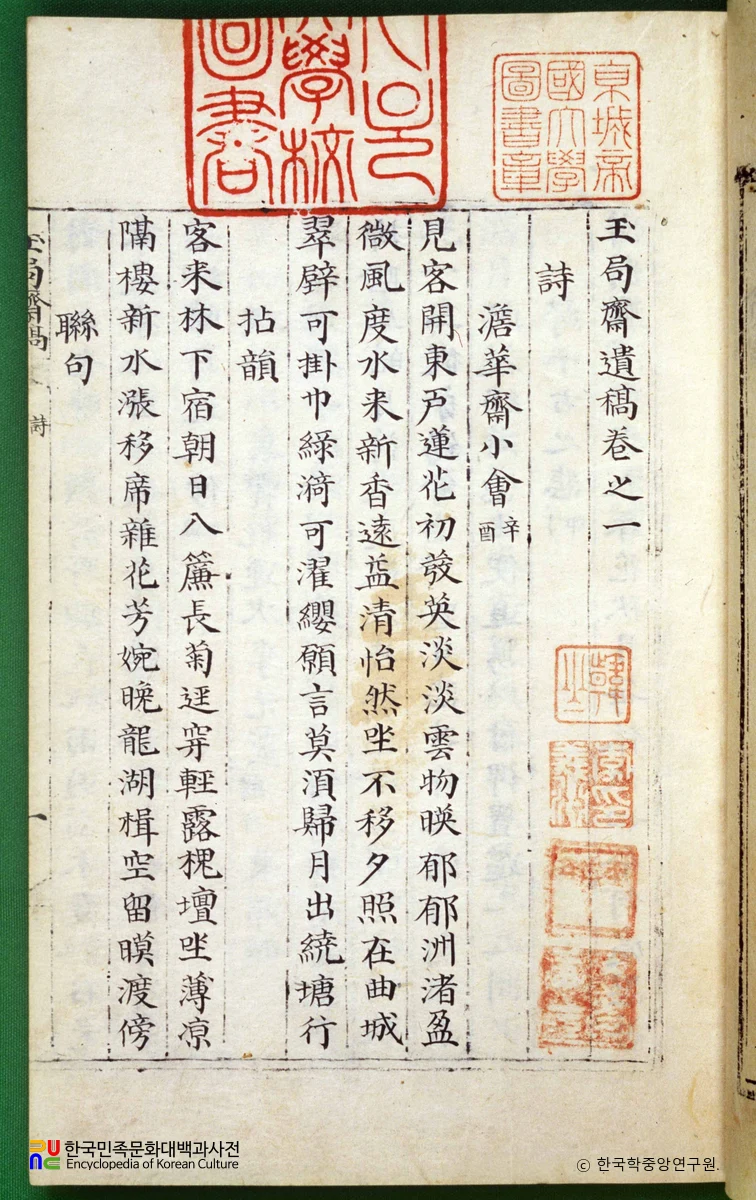 玉局齋遺稿卷之一
詩
澹華齋小會 辛酉
見客開東戶蓮花初發英淡淡雲物暎郁郁洲渚盈
微風度水来新香遠益清怡然坐不移夕照在曲城
翠壁可掛巾綠漪可濯纓願言莫湏歸月出繞塘行
拈韻
客来林下宿朝日入簾長菊逕穿輕露槐壇坐薄凉
隔樓新水漲移席雜花芳婉晚龍湖楫空留暝渡傍
聯句
玉局齋稿
詩
一
京城帝國大學圖書章
學校圖書
한국민족문화대백과사전
Encyclopedia of Korean Culture
ⓒ 한국학중앙연구원.